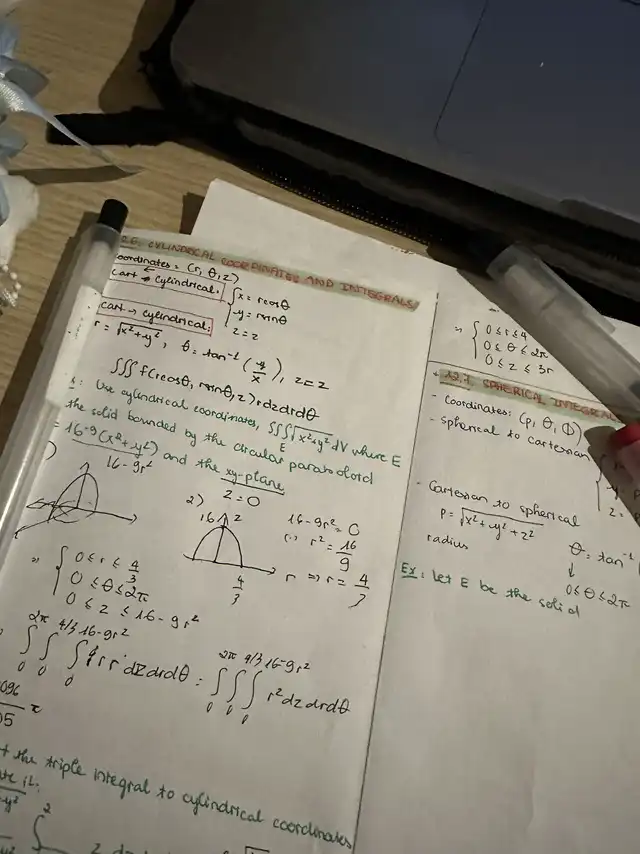 CYLINDRICAL COORDINATES AND INTEGRALS
coordinates = (r, θ, z)
cart → cylindrical:
{ x = rcosθ
y = rsinθ
z = z
cart → cylindrical:
r = √x²+y², θ = tan⁻¹ (y/x), z = z
∫∫∫ f(rcosθ, rsinθ, z) r dz dr dθ
: Use cylindrical coordinates, ∫∫∫_E √x²+y² dV where E
the solid bounded by the circular paraboloid
= 16-9(x²+y²) and the xy-plane
z = 0
) 16-9r²
2) 16 z
4/3 r
16-9r² = 0
r² = 16/9
⇒ r = 4/3
⇒ { 0 ≤ r ≤ 4/3
0 ≤ θ ≤ 2π
0 ≤ z ≤ 16-9r²
2π 4/3 16-9r²
∫ ∫ ∫ r r dz dr dθ = ∫ ∫ ∫ r² dz dr dθ
0 0 0
2π 4/3 16-9r²
0 0 0
π
the triple integral to cylindrical coordinates
2
⇒ { 0 ≤ r ≤ 4
0 ≤ θ ≤ 2π
0 ≤ z ≤ 3r
12.7. SPHERICAL INTEGRAL
- Coordinates: (ρ, θ, Φ)
- Spherical to cartesian
- Cartesian to spherical
ρ = √x²+y²+z²
radius
θ = tan⁻¹
↓
0 ≤ θ ≤ 2π
Ex: let E be the solid